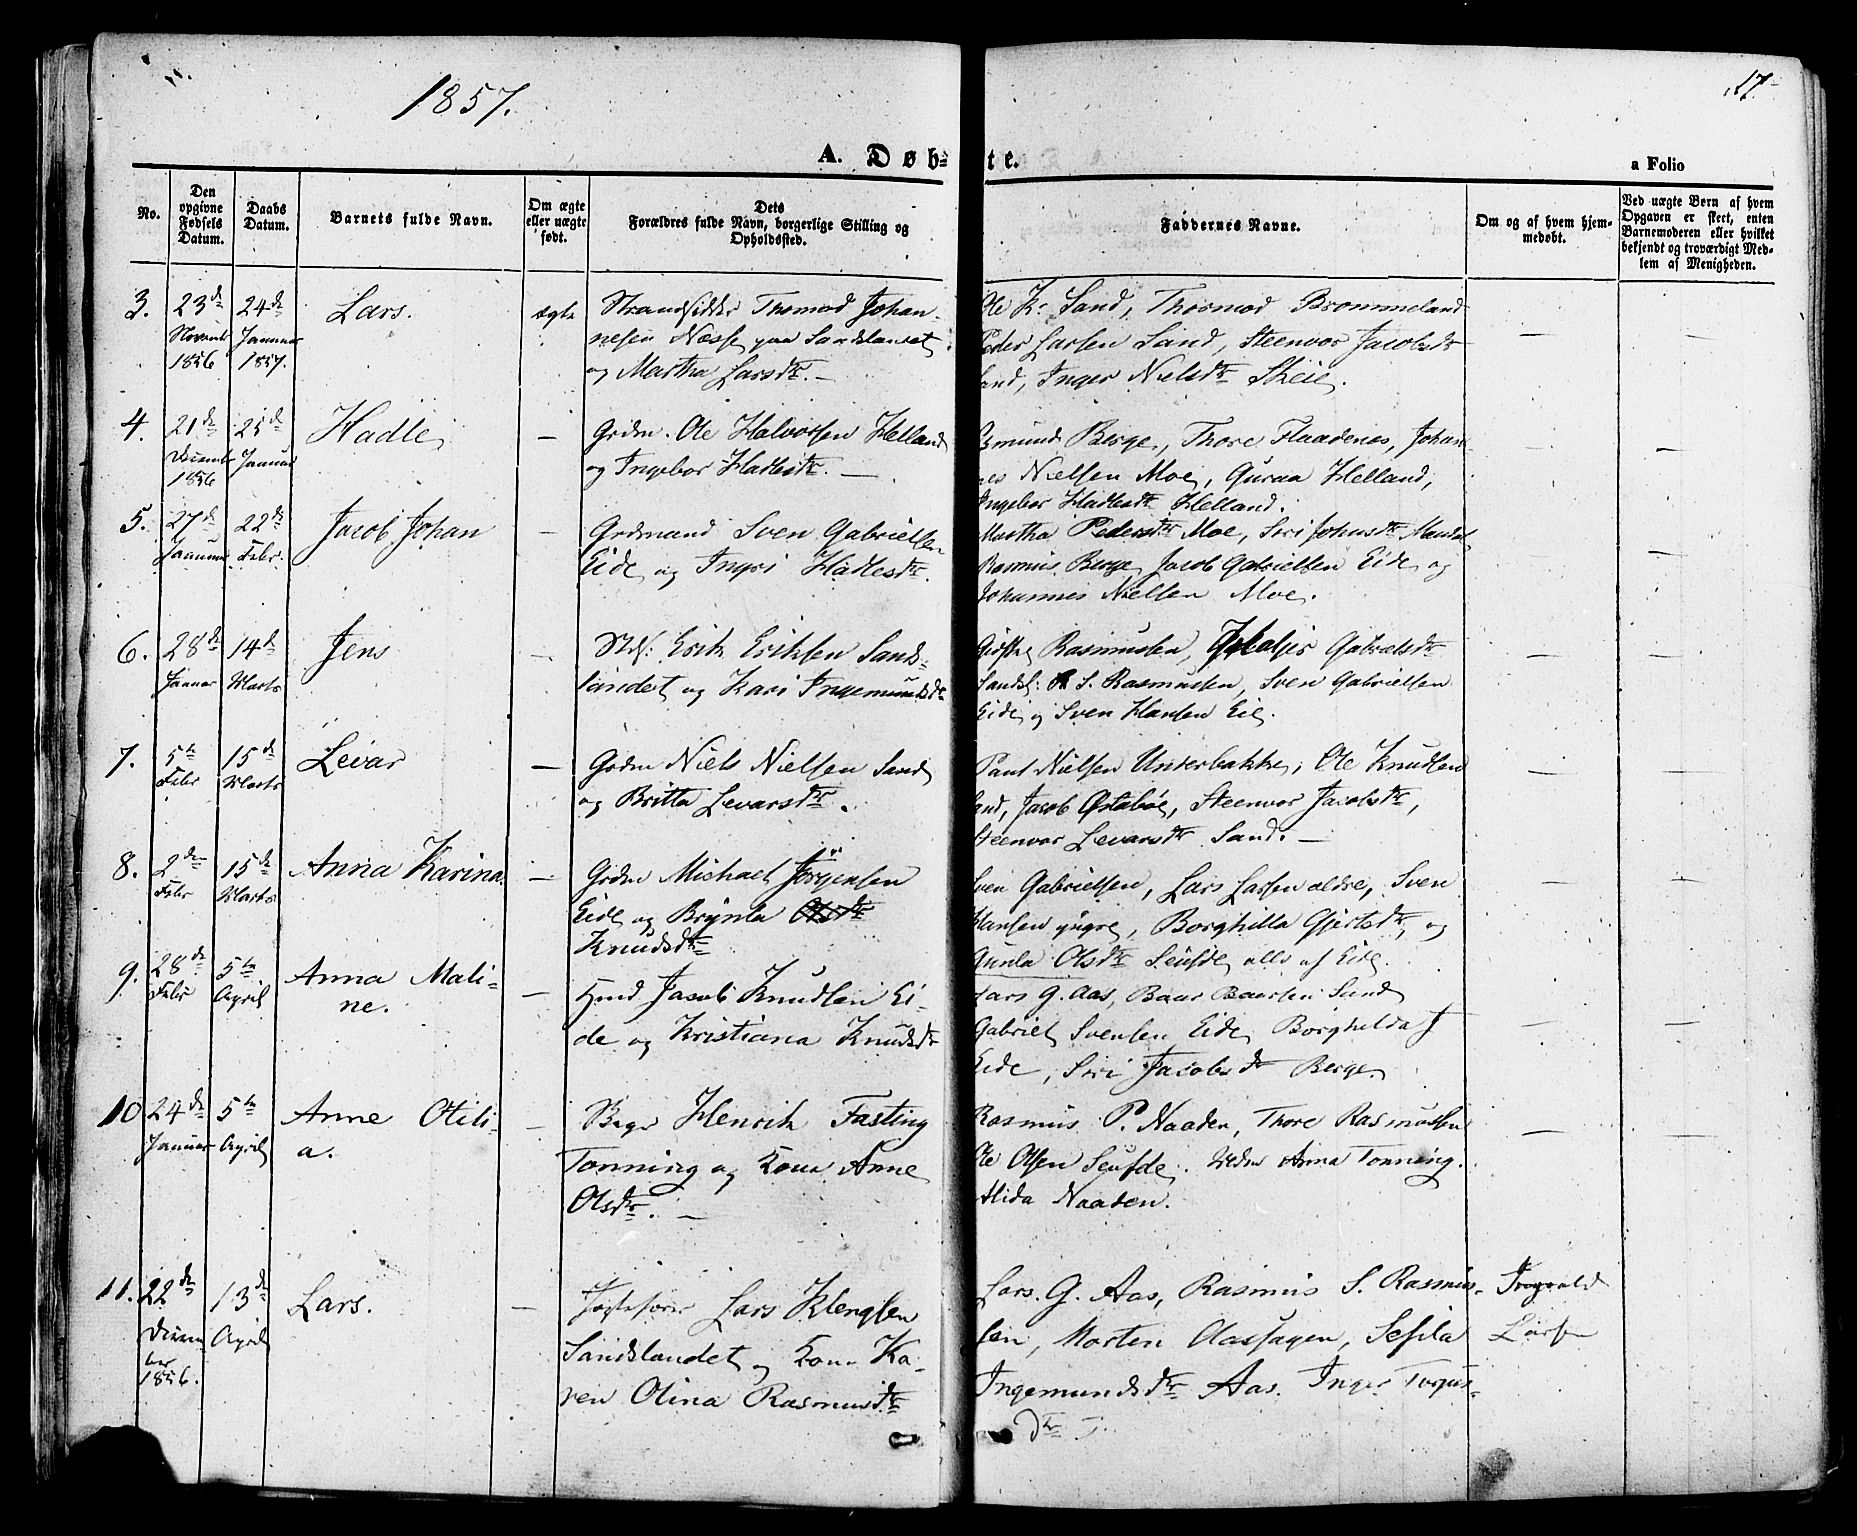 1857.
17
A. Døb-
te.
a Folio
No.
Den opgivne Fødsels Datum.
Daabs Datum.
Barnets fulde Navn.
Om ægte eller uægte født.
Dets Forældres fulde Navn, borgerlige Stilling og Opholdssted.
Faddernes Navne.
Om og af hvem hjem-
medøbt.
Ved uægte Børn af hvem
Opgaven er skeet, enten
Barnemoderen eller hvilket
bekjendt og troværdigt Med-
lem af Menigheden.
3. 23de Novemb 1856
24de Januar 1857.
Lars.
ægte
Strandsidder Thormod Johan-
nesen Næsse paa Sandslandet
og Martha Larsdtr. —
Ole K. Sand, Thormod Brommeland
Peder Larsen Sand, Steenvor Jacobsdtr
Sand, Inger Nielsdtr Skeie.
4. 21de Decemb 1856
25de Januar
Hadle
—
Grdm. Ole Halvorsen Helland
og Ingebor Hadlesdtr. —
Asmund Berge, Thore Flaadenes, Johan-
nes Nielsen Moe, Guraa Helland,
Ingebor Hadlesdtr Helland.
5. 27de Januar
22de Febr.
Jacob Johan
—
Grdmand Sven Gabrielsen
Eide og Ingri Hadlesdtr.
Martha Pedersdtr Moe, Siri Johnsdtr
Rasmus Berge, Jacob Gabrielsen Eide og
Johannes Nielsen Moe.
6. 28de Januar
14de Marts
Jens
—
Strds: Erik Eriksen Sands-
landet og Kari Ingemundsdtr
Rasmussen, Gabrielsdtr
Sandsl: S. Rasmussen, Sven Gabrielsen
Eide og Sven Hansen Eie.
7. 5te Febr
15de Marts
Levar
—
Grdm Niels Nielsen Sand
og Britta Levarsdtr.
Paul Nielsen Underbakke, Ole Knudsen
Sand, Jacob Østabøe, Steenvor Jacobsdtr,
Steenvor Levarsdtr Sand. —
8. 2den Febr
15de Marts
Anna Karina.
—
Grdm Michael Jørgensen
Eide og Brynla Olsdtr
Knudsdtr
Sven Gabrielsen, Lars Larsen ældre, Sven
Hansen yngre, Borghilla Gjertsdtr, og
Gunla Olsdtr Seufde alle af Eide.
9. 28de Febr
5te April
Anna Mali-
ne.
—
Jacob Knudsen Ei-
de og Kristiana Knudsdtr
Lars G. Aas, Baar Baarsen Sand
Gabriel Svensen Eide, Borghilda J
Eide, Siri Jacobsdtr Berge.
10 24de Januar
5te April
Anne Otili-
a.
—
Henrik Fasting
Tonning og Kone Anne
Olsdtr. —
Rasmus P. Naaden, Thore Rasmussen
Ole Olsen Seufde. Anna Tonning.
Alida Naaden.
11. 22de Decem-
ber 1856.
13de April
Lars.
—
Lars Klengsen
Sandslandet og Kone Ka-
ren Olina Rasmusdtr
Lars. G. Aas, Rasmus S. Rasmus-
sen, Morten Aashagen, Sesila
Ingemundsdtr Aas. Inger Torjus-
dtr
Ingvald
Larsen